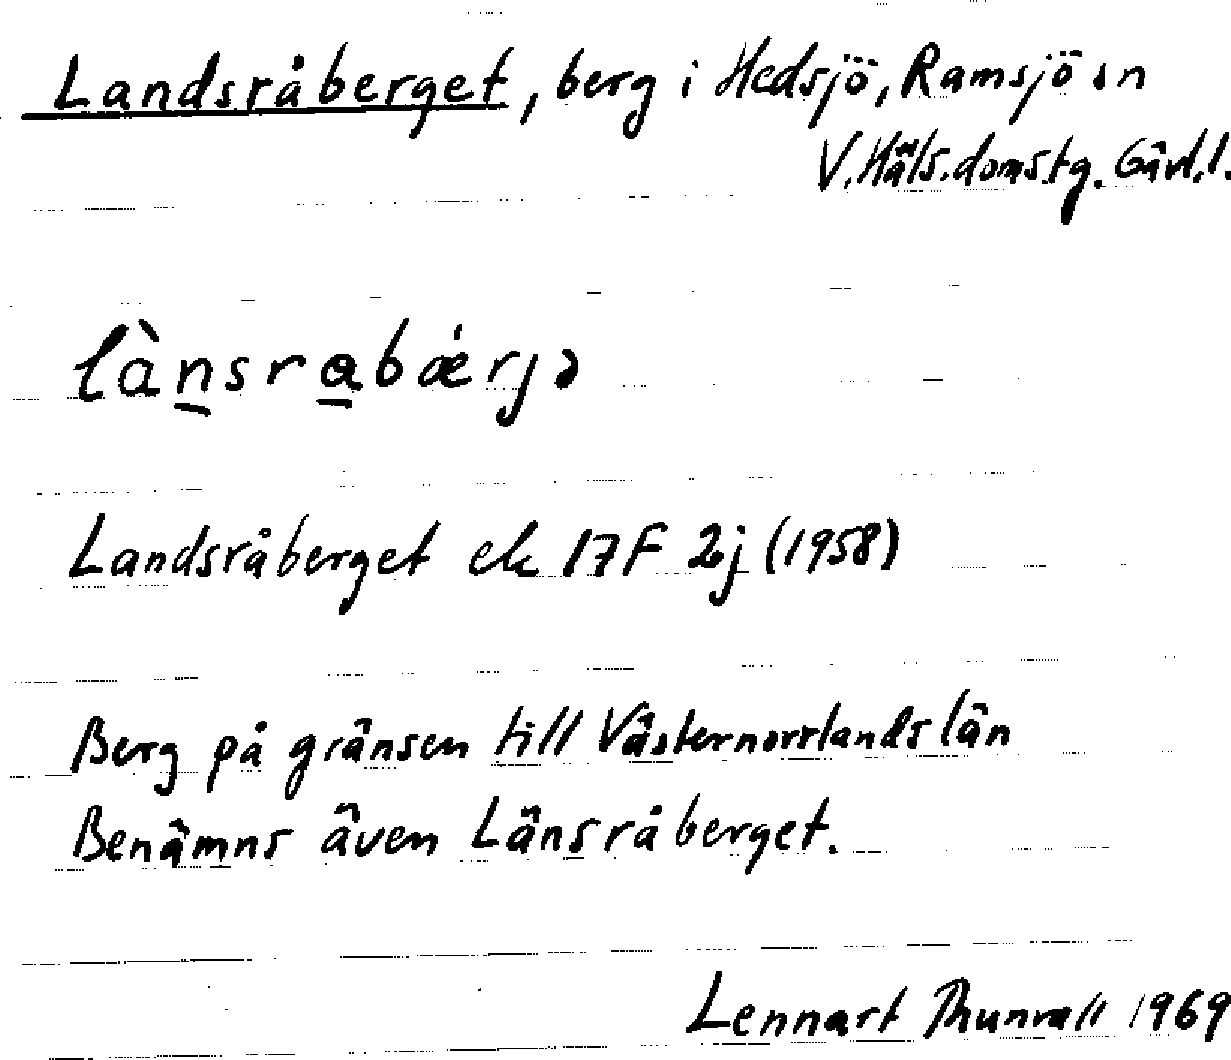 Landsråberget, berg i Hedsjö, Ramsjö sn
V. Häls. domstg. Gävl. l.
lànsrabǽrjə
Landsråberget ek 17F 2j (1958)
Berg på gränsen till Västernorrlands län
Benämns även Länsråberget.
Lennart Thunvall 1969